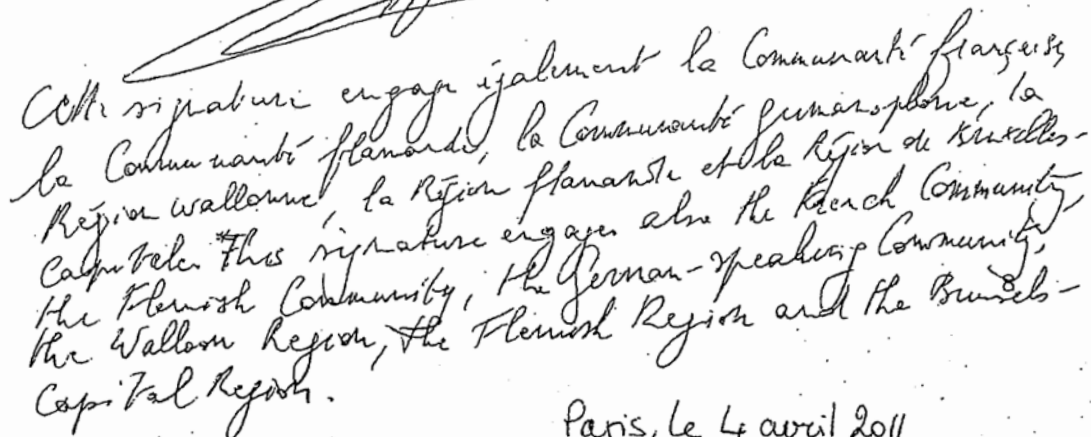 Cette signature engage également la Communauté française,
la Communauté flamande, la Communauté germanophone, la
Région wallonne, la Région flamande et la Région de Bruxelles-
capitale. This signature engages also the French Community,
the Flemish Community, the German-speaking Community,
the Walloon Region, the Flemish Region and the Brussels-
Capital Region.
Paris, le 4 avril 2011